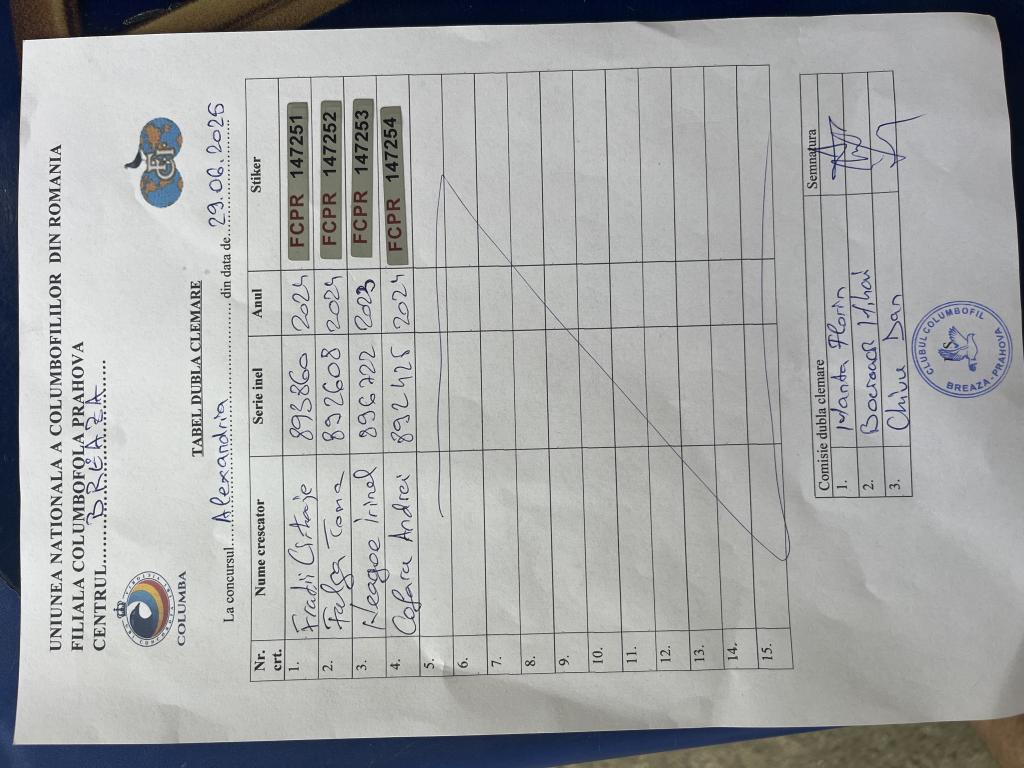 UNIUNEA NATIONALA A COLUMBOFILILOR DIN ROMANIA
FILIALA COLUMBOFOLA PRAHOVA
CENTRUL......BREAZA......
COLUMBA
FCI
TABEL DUBLA CLEMARE
La concursul....Alexandria.... din data de....29.06.2025
Nr. crt. Nume crescator Serie inel Anul Stiker
1. Fratii Cităroje 893860 2024 FCPR 147251
2. Falga Toma 892608 2024 FCPR 147252
3. Neagoe Irinel 896722 2023 FCPR 147253
4. Cafara Andrei 892425 2024 FCPR 147254
5.
6.
7.
8.
9.
10.
11.
12.
13.
14.
15.
Comisie dubla clemare Semnatura
1. Manta Florin
2. Mihai
3. Chivu Dan
CLUBUL COLUMBOFIL
BREAZA-PRAHOVA